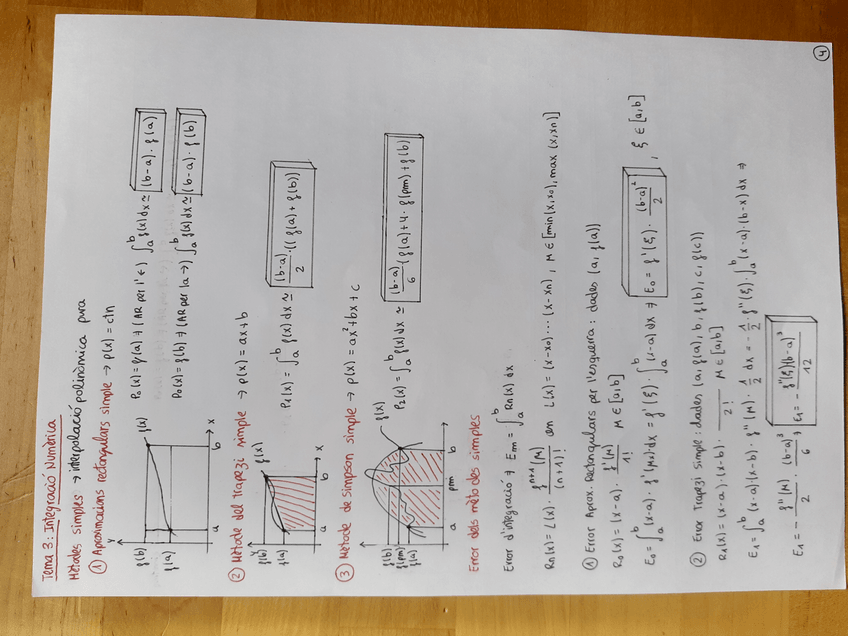 Tema 3: Integració Numèrica
Mètodes simples → interpolació polinòmica pura
① Aproximacions rectangulars simple → p(x) = ctn
y
f(b)
f(a)
f(x)
a
b
x
P₀(x) = f(a) → (AR per l'←) ∫ₐᵇ f(x)dx ≃ (b-a)·f(a)
P₀(x) = f(b) → (AR per la →) ∫ₐᵇ f(x)dx ≃ (b-a)·f(b)
② Mètode del Trapezi simple → p(x) = ax+b
y
f(b)
f(a)
f(x)
a
b
x
P₁(x) = ∫ₐᵇ f(x)dx ≃ (b-a)/2 · ((f(a)+f(b))
③ Mètode de simpson simple → p(x) = ax²+bx+c
f(b)
f(pm)
f(a)
f(x)
a
pm
b
P₂(x) = ∫ₐᵇ f(x)dx ≃ (b-a)/6 (f(a)+4·f(pm)+f(b)
Error dels mètodes simples
Error d'integració → Em = ∫ₐᵇ Rn(x) dx
Rn(x) = L(x) · fⁿ⁺¹(μ)/(n+1)! on L(x) = (x-x₀)...(x-xn), μ ∈ [min(x,x₀), max(x,xn)]
① Error Aprox. Rectangulars per l'esquerra: dades (a, f(a))
R₀(x) = (x-a) · f'(μ)/1! μ ∈ [a,b]
E₀ = ∫ₐᵇ (x-a) · f'(μ) dx = f'(ξ) · ∫ₐᵇ (x-a) dx → E₀ = f'(ξ) · (b-a)²/2, ξ ∈ [a,b]
② Error Trapezi simple: dades (a, f(a), b, f(b), c, f(c))
R₁(x) = (x-a)·(x-b) · /2! μ ∈ [a,b]
E₁ = ∫ₐᵇ (x-a)(x-b) · f''(μ) · 1/2 dx = -1/2 · f''(ξ) · ∫ₐᵇ (x-a)·(b-x) dx ⇒
E₁ = - f''(μ)/2 · (b-a)³/6 → E₁ = - f''(ξ)(b-a)³/12
4